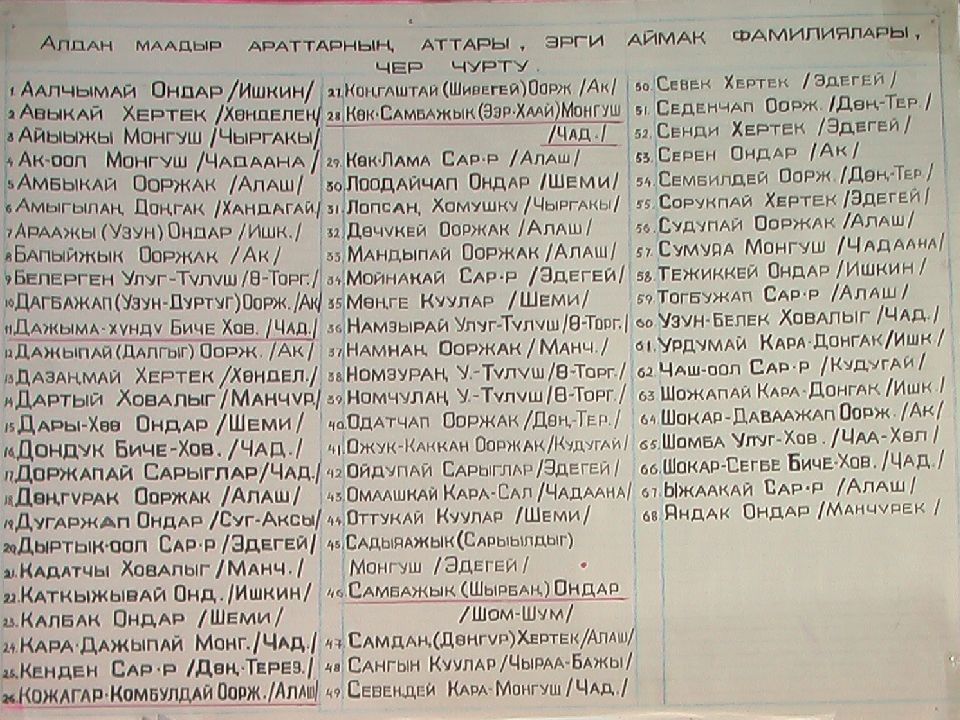 Алдан маадыр араттарның аттары, эрги аймак фамилиялары,
чер чурту.
1. Аалчымай Ондар /Ишкин/
2. Авыкай Хертек /Хөнделең
3. Айыыжы Монгуш /Чыргакы/
4. Ак-оол Монгуш /Чадаана/
5. Амбыкай Ооржак /Алаш/
6. Амыгылаң Доңгак /Хандагай/
7. Араажы (Узун) Ондар /Ишк./
8. Бапыйжык Ооржак /Ак/
9. Белерген Улуг-Түлүш /Ө-Торг./
10. Дагбажап (Узун-Дуртуг) Оорж. /Ак/
11. Дажыма-хүндү Биче Хов. /Чад./
12. Дажыпай (Далгыг) Оорж. /Ак/
13. Дазаңмай Хертек /Хөндел./
14. Дартый Ховалыг /Манчүр./
15. Дары-Хөө Ондар /Шеми/
16. Дондук Биче-Хов. /Чад./
17. Доржапай Сарыглар /Чад./
18. Дөңгүрак Ооржак /Алаш/
19. Дугаржап Ондар /Суг-Аксы/
20. Дыртык-оол Сар-р /Эдегей/
21. Кадатчы Ховалыг /Манч./
22. Каткыжывай Онд. /Ишкин/
23. Калбак Ондар /Шеми/
24. Кара-Дажыпай Монг. /Чад./
25. Кенден Сар-р /Дөң-Терез./
26. Кожагар-Комбулдай Оорж. /Алаш/
27. Коңгаштай (Шивегей) Оорж /Ак/
28. Көк-Самбажык (Ээр-Хаай) Монгуш
/Чад./
29. Көк-Лама Сар-р /Алаш/
30. Лоодайчап Ондар /Шеми/
31. Лопсаң Хомушку /Чыргакы/
32. Дөчүкей Ооржак /Алаш/
33. Мандыпай Ооржак /Алаш/
34. Мойнакай Сар-р /Эдегей/
35. Мөңге Куулар /Шеми/
36. Намзырай Улуг-Түлүш /Ө-Торг./
37. Намнаң Ооржак /Манч./
38. Номзураң У.-Түлүш /Ө-Торг./
39. Номчулаң У.-Түлүш /Ө-Торг./
40. Одатчап Ооржак /Дөң-Тер./
41. Ожук-Каккан Ооржак /Кудугай/
42. Ойдупай Сарыглар /Эдегей/
43. Омаашкай Кара-Сал /Чадаана/
44. Оттукай Куулар /Шеми/
45. Садыяажык (Сарыылдыг)
Монгуш /Эдегей/
46. Самбажык (Шырбаң) Ондар
/Шом-Шум/
47. Самдаң (Дөңгүр) Хертек /Алаш/
48. Сангын Куулар /Чыраа-Бажы/
49. Севендей Кара-Монгуш /Чад./
50. Севек Хертек /Эдегей/
51. Седенчап Оорж. /Дөң-Тер./
52. Сенди Хертек /Эдегей/
53. Серен Ондар /Ак/
54. Сембилдей Оорж. /Дөң-Тер./
55. Сорукпай Хертек /Эдегей/
56. Судупай Ооржак /Алаш/
57. Сумура Монгуш /Чадаана/
58. Тежиккей Ондар /Ишкин/
59. Тогбужап Сар-р /Алаш/
60. Узун-Белек Ховалыг /Чад./
61. Урдумай Кара-Донгак /Ишк/
62. Чаш-оол Сар-р /Кудугай/
63. Шожапай Кара-Донгак /Ишк./
64. Шокар-Даваажап Оорж. /Ак/
65. Шомба Улуг-Хов. /Чаа-Хөл/
66. Шокар-Сегбе Биче-Хов. /Чад./
67. Ыжаакай Сар-р /Алаш/
68. Яндак Ондар /Манчүрек/